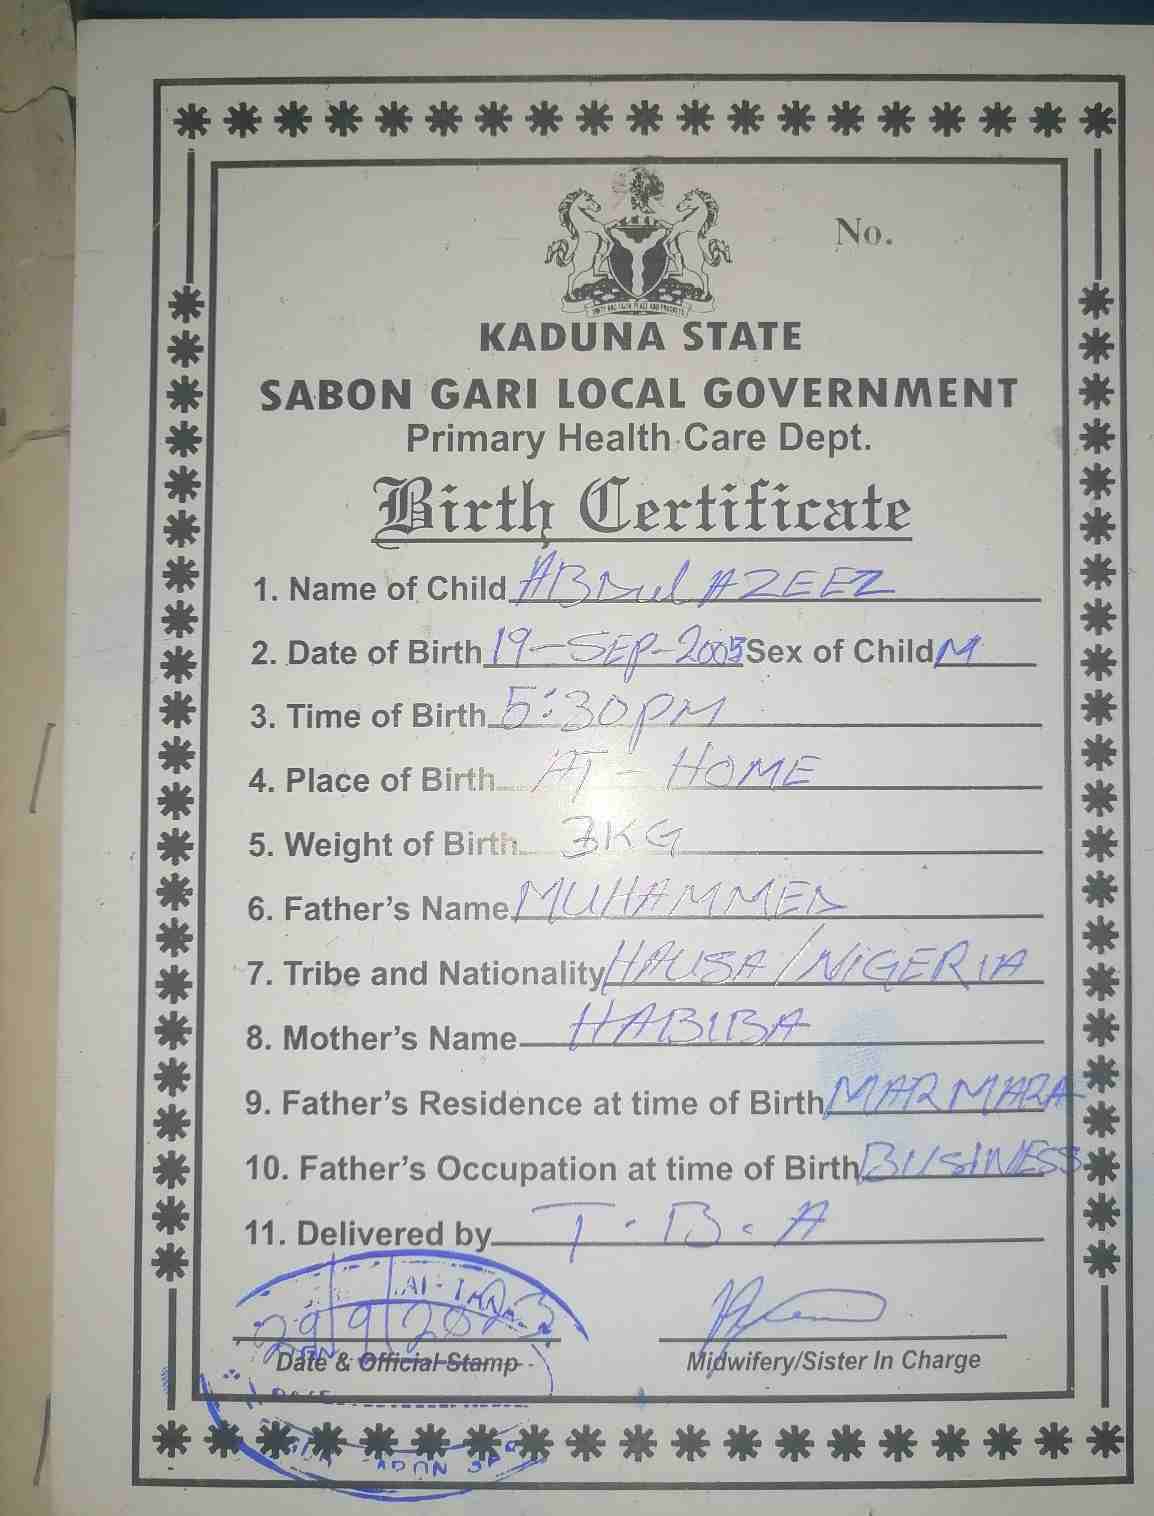 No.
KADUNA STATE
SABON GARI LOCAL GOVERNMENT
Primary Health Care Dept.
Birth Certificate
1. Name of Child ABDul AZEEZ
2. Date of Birth 19-SEP-2005 Sex of Child M
3. Time of Birth 5:30PM
4. Place of Birth AT-HOME
5. Weight of Birth 3KG
6. Father's Name MUHAMMED
7. Tribe and Nationality HAUSA/NIGERIA
8. Mother's Name HABIBA
9. Father's Residence at time of Birth MARMARA
10. Father's Occupation at time of Birth BUSINESS
11. Delivered by T.B.A
29/9/2023
Date & Official Stamp
Midwifery/Sister In Charge